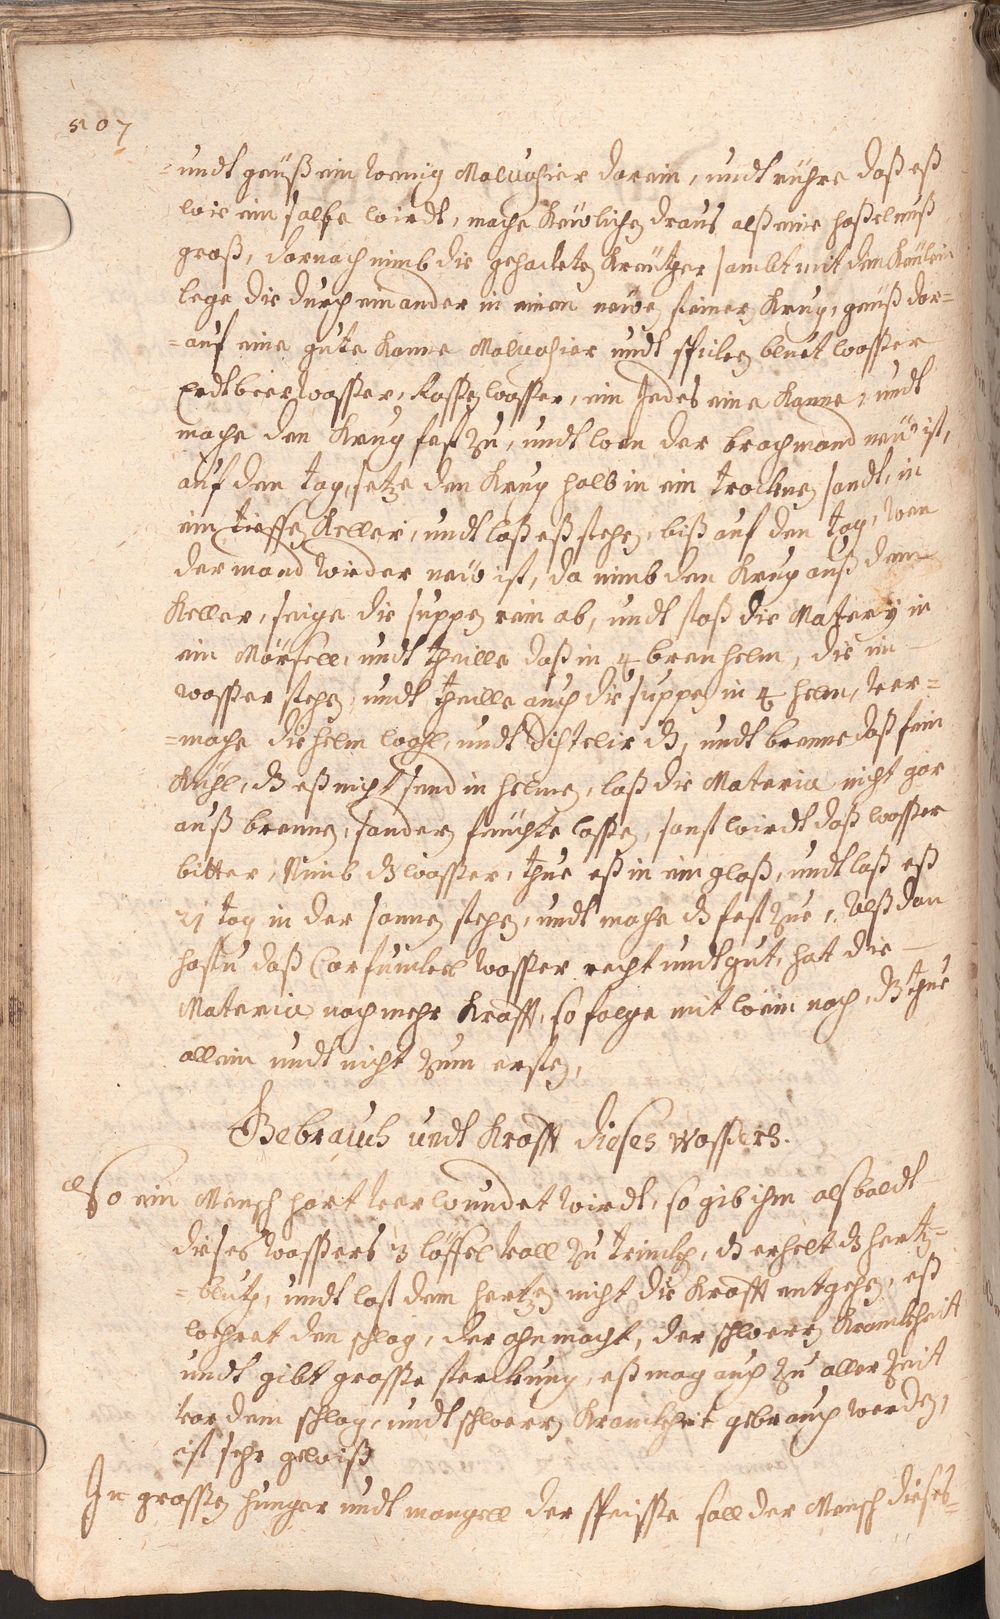 507
=undt geüß ein wenig Maluasier darein, undt rühre daß eß
wie ein salbe wirdt, mache Keüvlichen draus alß eine haßelnuß
groß, darnach nimb die gehackete Kreütger sambt mit den Keülein
lege die durch einander in einen newe steinern Krug, geüß dar=
=auf eine gute Kanne Maluasier undt spicken bluet waßer
Erdtbeer Waßer, Roßen waßer, ein Jedes eine Kanne, undt
mache den Krug fest zu, undt wen der brachmond neü ist,
auf den tag, setze den Krug halb in ein trocknen sandt, in
ein tieffen Keller, undt laß eß stehen, biß auf den tag, wen
der mond wieder neü ist, da nimb den Krug auß dem
Keller, seige die suppen rein ab, undt stoß die Matery in
ein Mörsell, undt theille daß in 4 bren helm, die im
waßer stehen, undt theille auch die suppen in 4 helm, ver=
=mache die helm wohl, undt distelir dz, undt brenne daß fein
Kühl, dz eß nicht send in helmen, laß die Materia nicht gar
auß brennen, sondern feüchte laßen, sonst wirdt daß waßer
bitter, Nimb dz waßer, thue eß in ein glaß, undt laß eß
21 tag in der sonnen stehen, undt mache dz fest zue, Alß dan
hastu daß Carfunckel Waßer recht undt gut, hatt die
Materia noch mehr Krafft, so folge mit wein noch, dz thue
allein undt nicht zum ersten,
Gebrauch undt Krafft dieses Waßers.
So ein Mensch hart verwundet wirdt, so gib ihm alsbaldt
dieses Waßers 3 löffel voll zu trincken, dz erhelt dz hertz=
=bluth, undt last dem hertzen nicht die Krafft entgehen, eß
wehret den schlag, der ohnmacht, der schweren Kranckheit
undt gibt große sterckung, eß mag auch zu aller Zeit
vor dem schlag, undt schweren Kranckheit gebrauch werden,
ist sehr gewiß
In großen hunger undt mangell der speiße soll der Mensch dieses=